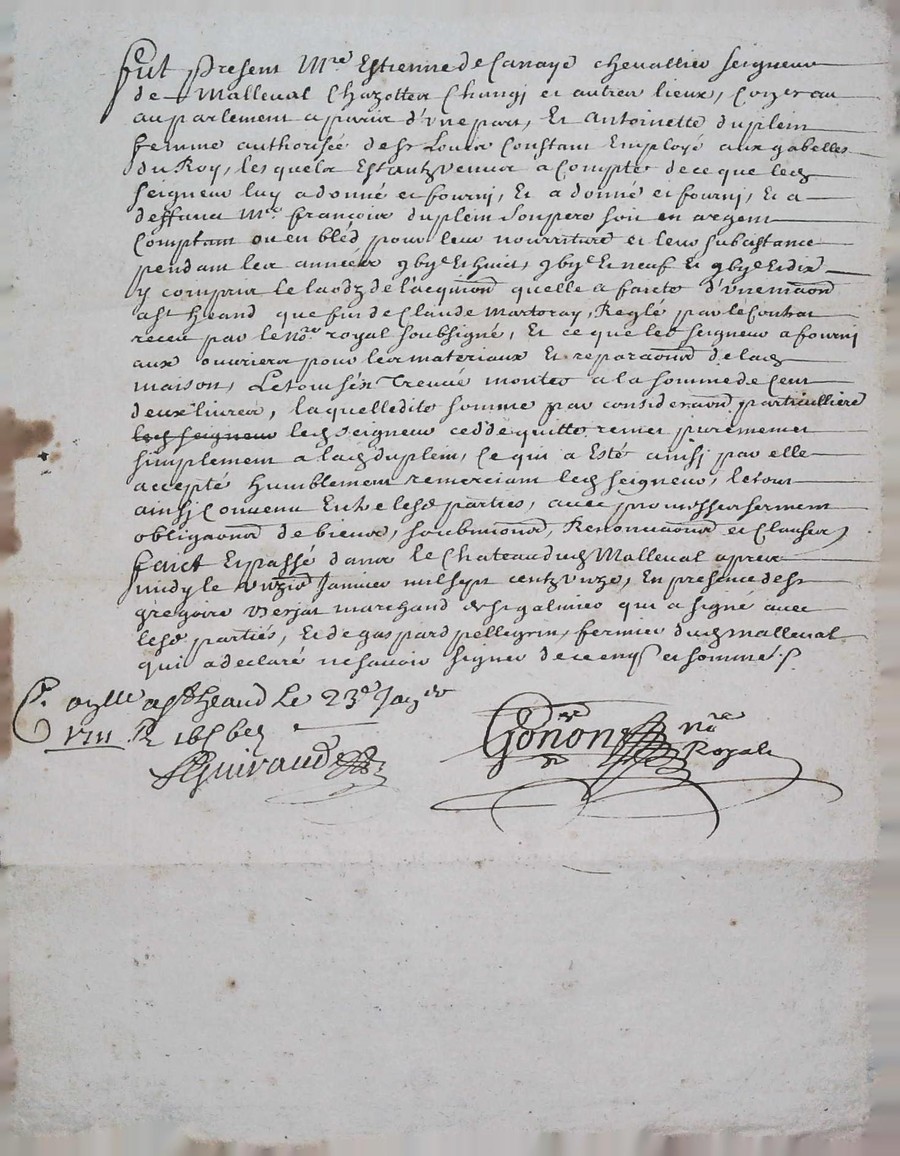 Fut Present Mre Estienne de Canaye chevallier seigneur
de Malleval Chazottes Changi et autres lieux, Conser au
au parlement a paris d'une part, Et Antoinette duplein
femme authorisée de sr Louis Constant Employé aux gabelles
du Roy, lesquels Estantz venus a compte de ce que led
seigneur luy a donné et fourny, Et a donné et fourny, Et a
deffunct Mre françois duplein son pere soit en argent
Comptant ou en bléd pour leur nourriture et leur subcistance
pendant les années gbye Et huict, gbye Et neuf Et gbye Et dix
y compris le laodz de l'acquion quelle a faicte d'une maon
a St heand que fut de Claude Martoray, Reglé par le Contrat
receu par le Nore royal soubsigné, Et ce que led seigneur a fourny
aux ouvriers pour les materiaux Et reparaons de lad
maison, Le tout sest treuvé monter a la somme de Cent
deux livres, laquelle dite somme par consideraon particulliere
led seigneur led seigneur cedde quitte remet purement
simplement a lad duplein, Ce qui a Esté ainsy par elle
accepté humblement remerciant led seigneur, le tout
ainsy convenu Entre lesd parties, avec promesses serment
obligaons de biens, soubmions, Renonciaons et clauses
faict Et passé dans le Chateau dud Malleval apres
midy le Janvier mil sept centz unze, En presence de sr
gregoire Verjat marchand de St galmier qui a signé avec
lesd parties, Et de gaspard pellegrin, fermier dud malleval
qui a declaré ne savoir signer de ce enq et sommé
a St heand Le 23e Janer
1711
Guiraud
Gonon nore
Royal